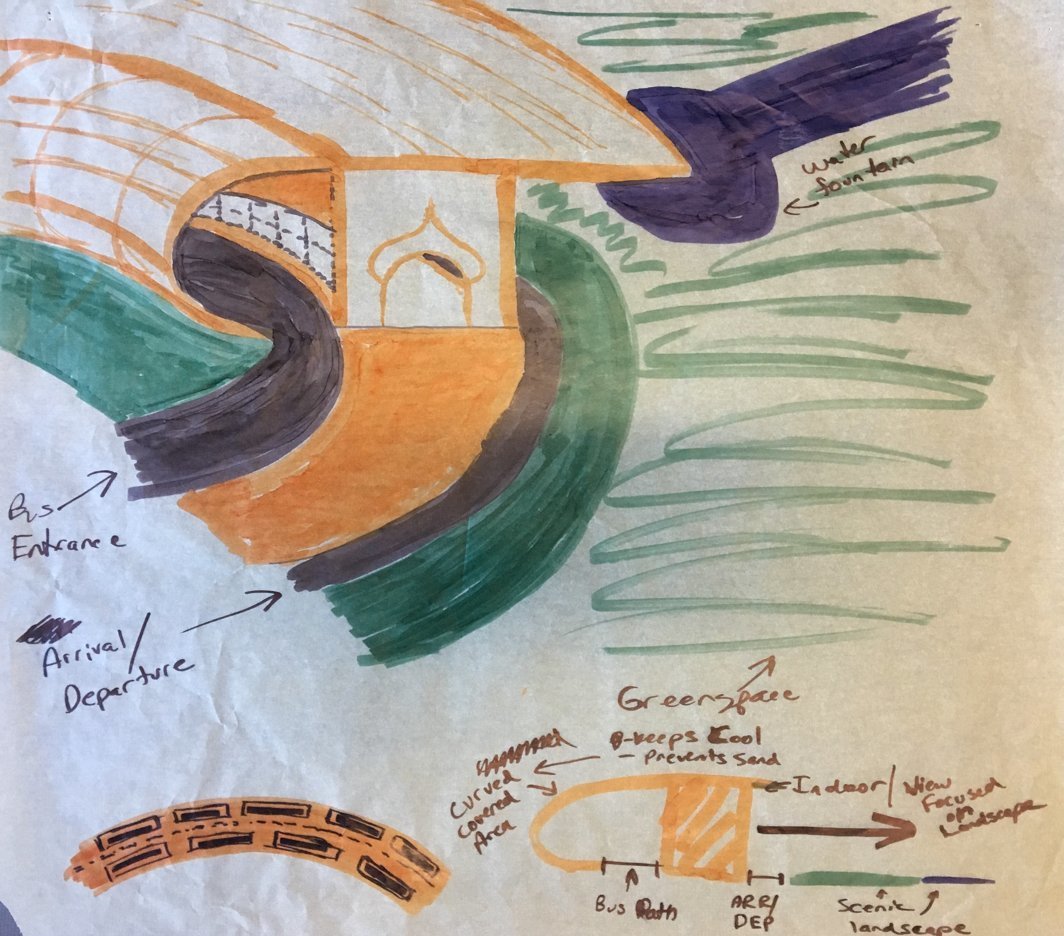 water
fountain
Bus
Entrance
Arrival/
Departure
Greenspace
-keeps Cool
- Prevents Sand
Curved
covered
Area
Indoor/
View
Focused
on
Landscape
Bus Path
ARR/
DEP
Scenic
landscape